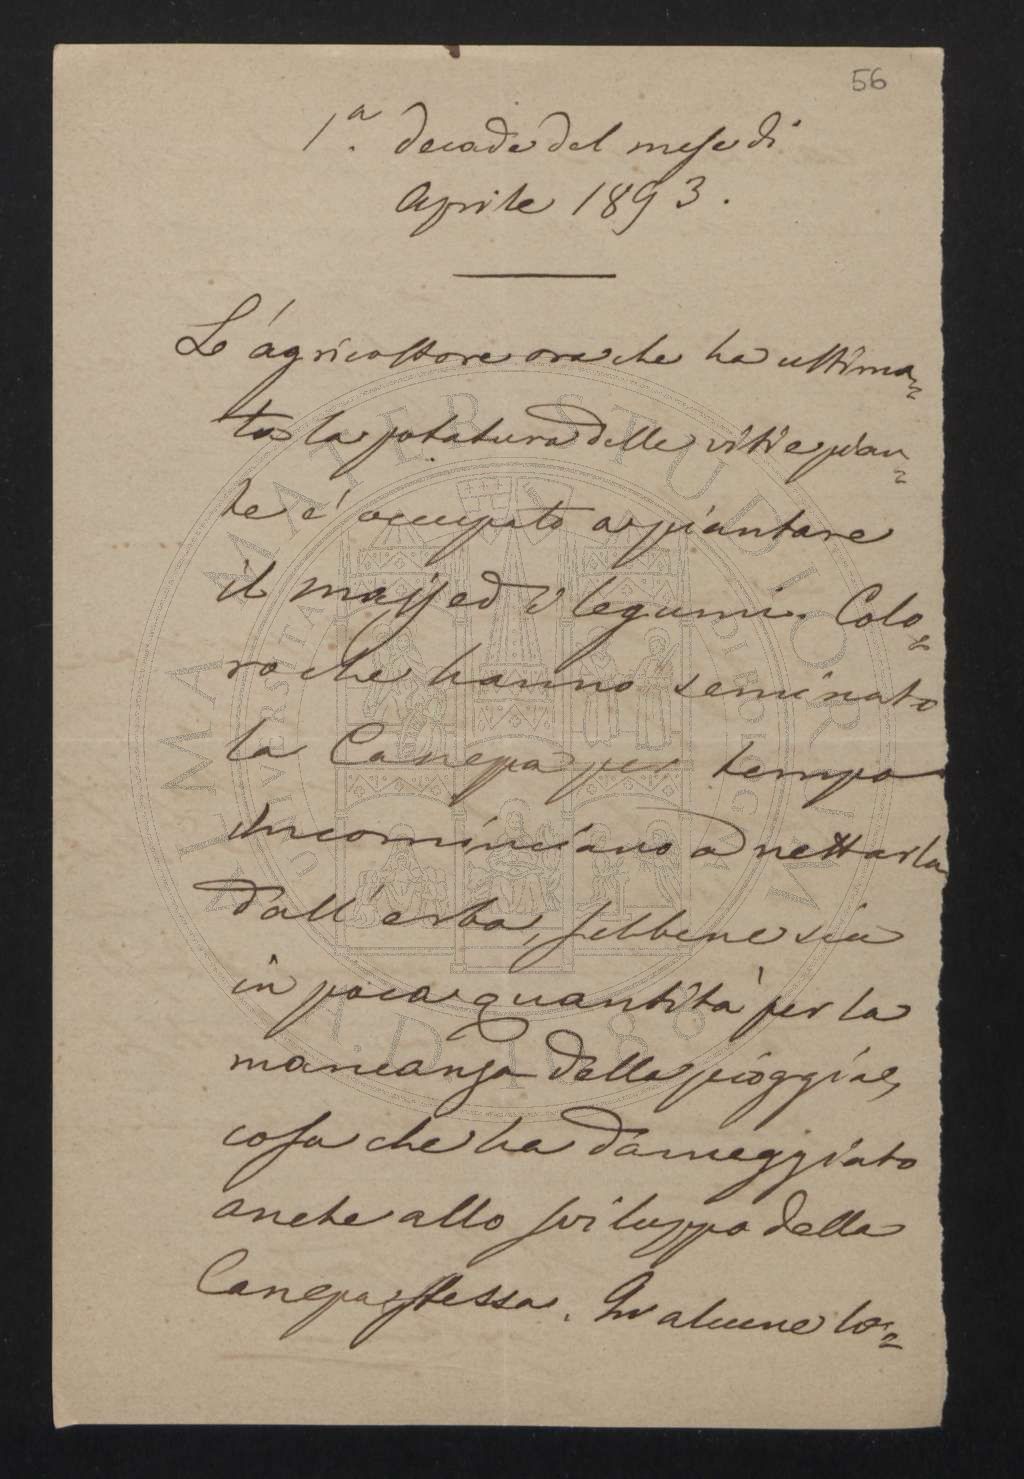 56
1.a decade del mese di
Aprile 1893.
L'agricoltore ora che ha ultima=
to la potatura delle viti e pian=
te é occupato a piantare
il majs ed i legumi. Colo=
ro che hanno seminato
la Canepa per tempo
incominciano a nettarla
dall'erba, sebbene sia
in poca quantità per la
mancanza della pioggia,
cosa che ha danneggiato
anche allo sviluppo della
Canepa stessa. In alcune lo=
ALMA MATER STUDIORUM
A.D. 1088